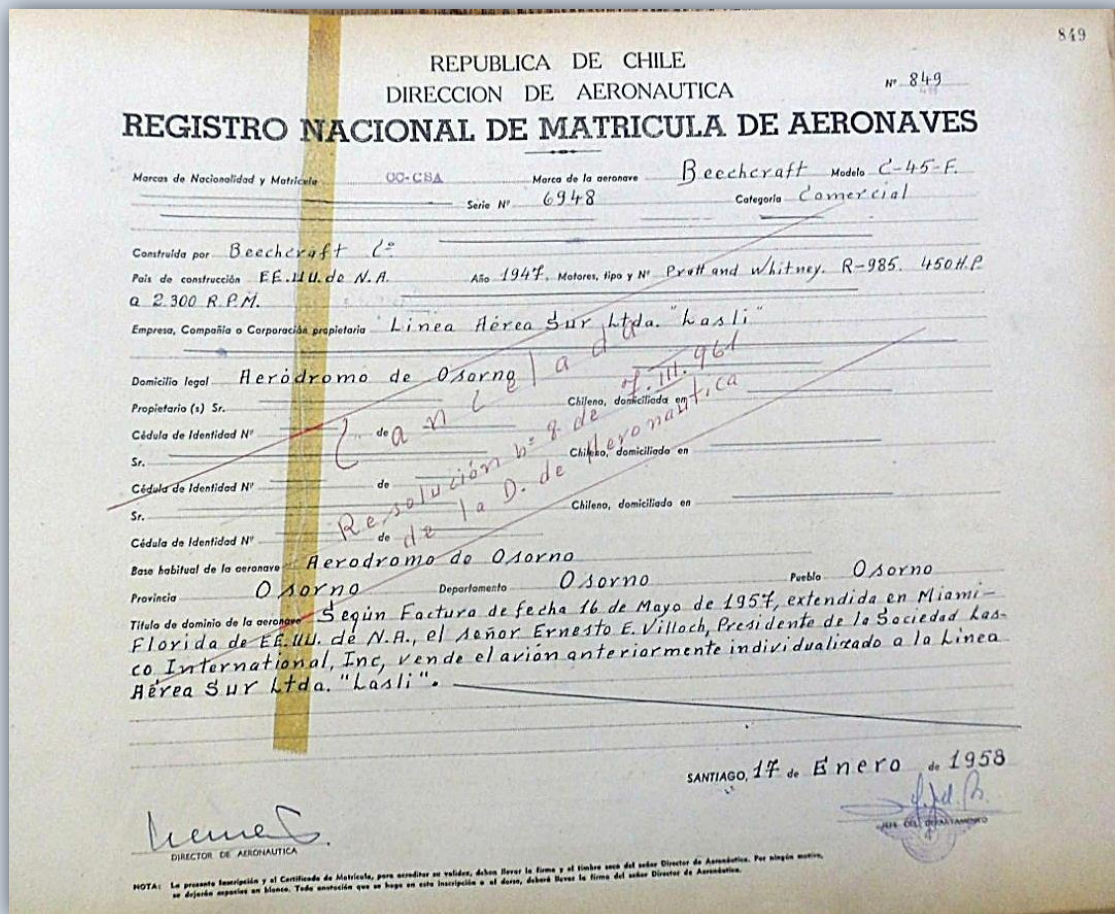 849
REPUBLICA DE CHILE
DIRECCION DE AERONAUTICA
Nº 849
REGISTRO NACIONAL DE MATRICULA DE AERONAVES
Marcas de Nacionalidad y Matrícula CC-CSA Marca de la aeronave Beechcraft Modelo C-45-F.
Serie Nº 6948 Categoría Comercial
Construida por Beechcraft Cº
País de construcción EE.UU. de N.A. Año 1947. Motores, tipo y Nº Pratt and Whitney. R-985. 450 H.P.
a 2.300 R.P.M.
Empresa, Compañía o Corporación propietaria Línea Aérea Sur Ltda. "Lasli"
Domicilio legal Aeródromo de Osorno
Propietario (s) Sr. Chileno, domiciliado en
Cédula de Identidad Nº de
Sr. Chileno, domiciliado en
Cédula de Identidad Nº de
Sr. Chileno, domiciliado en
Cédula de Identidad Nº de
Cancelada
Resolución nº 8 de 7.III.961
de la D. de Aeronautica
Base habitual de la aeronave Aerodromo de Osorno
Provincia Osorno Departamento Osorno Pueblo Osorno
Título de dominio de la aeronave Según Factura de fecha 16 de Mayo de 1957, extendida en Miami-
Florida de EE.UU. de N.A., el señor Ernesto E. Villoch, Presidente de la Sociedad Las-
co International, Inc, vende el avión anteriormente individualizado a la Línea
Aérea Sur Ltda. "Lasli".
SANTIAGO, 17 de Enero de 1958
DIRECTOR DE AERONAUTICA
JEFE DEL DEPARTAMENTO
NOTA: La presente Inscripción y el Certificado de Matrícula, para acreditar su validez, deben llevar la firma y el timbre seco del señor Director de Aeronáutica. Por ningún motivo,
se dejarán espacios en blanco. Toda anotación que se haga en esta inscripción o al dorso, deberá llevar la firma del señor Director de Aeronáutica.